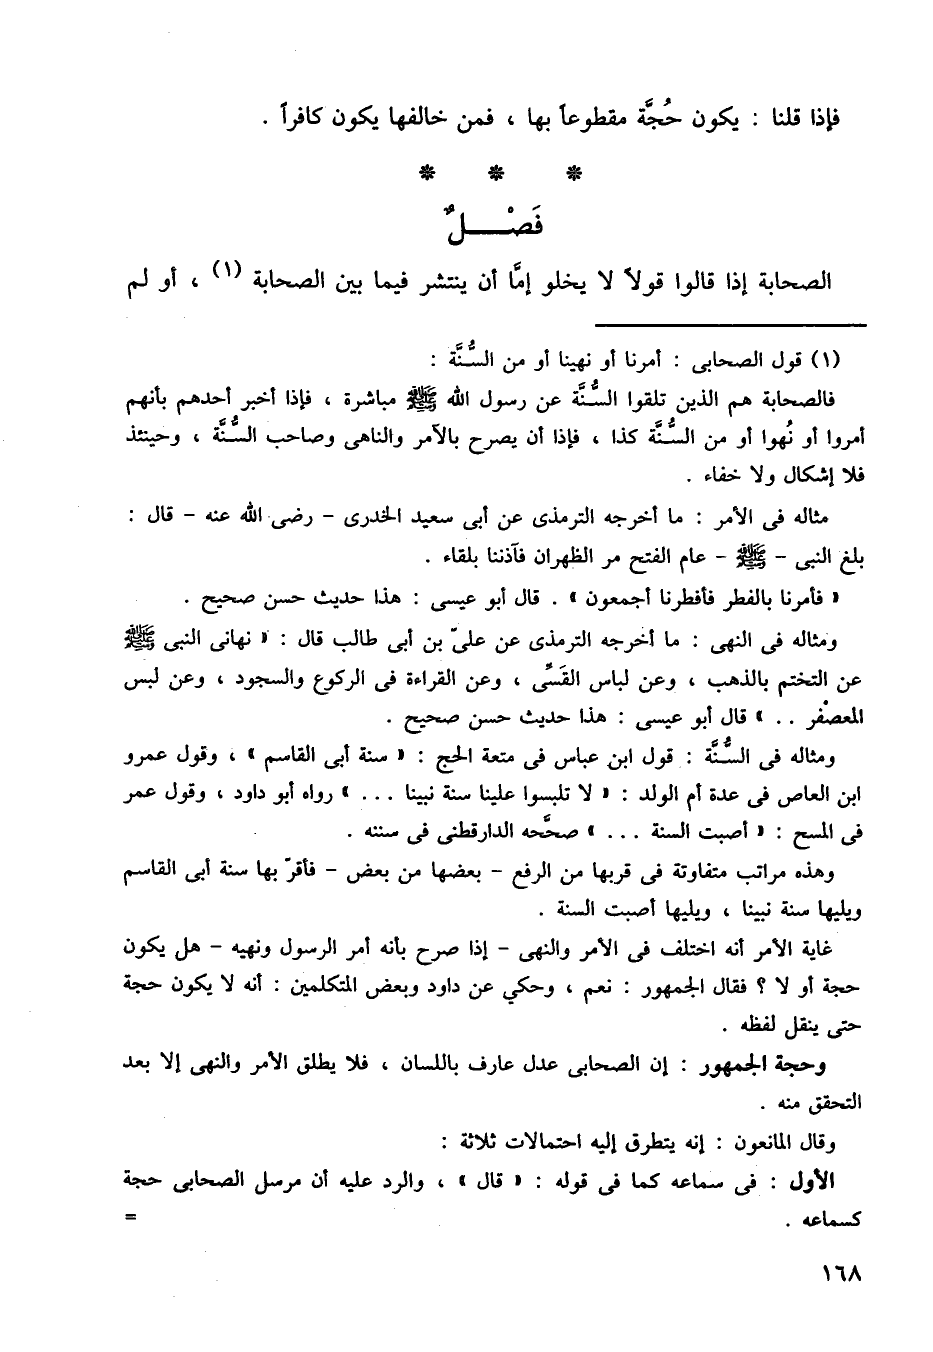 فإذا قلنا : يكون حُجَّة مقطوعاً بها ، فمن خالفها يكون كافراً .
* * *
فَصْــــلٌ
الصحابة إذا قالوا قولاً لا يخلو إمَّا أن ينتشر فيما بين الصحابة (١) ، أو لم
(١) قول الصحابى : أمرنا أو نهينا أو من السُّنَّة :
فالصحابة هم الذين تلقوا السُّنَّة عن رسول الله ﷺ مباشرة ، فإذا أخبر أحدهم بأنهم
أمروا أو نُهوا أو من السُّنَّة كذا ، فإذا أن يصرح بالآمر والناهى وصاحب السُّنَّة ، وحينئذ
فلا إشكال ولا خفاء .
مثاله فى الأمر : ما أخرجه الترمذى عن أبى سعيد الخدرى – رضى الله عنه – قال :
بلغ النبى – ﷺ – عام الفتح مر الظهران فآذننا بلقاء .
« فأمرنا بالفطر فأفطرنا أجمعون » . قال أبو عيسى : هذا حديث حسن صحيح .
ومثاله فى النهى : ما أخرجه الترمذى عن علىّ بن أبى طالب قال : « نهانى النبى ﷺ
عن التختم بالذهب ، وعن لباس القَسِّى ، وعن القراءة فى الركوع والسجود ، وعن لبس
المعصْفر .. » قال أبو عيسى : هذا حديث حسن صحيح .
ومثاله فى السُّنَّة : قول ابن عباس فى متعة الحج : « سنة أبى القاسم » ، وقول عمرو
ابن العاص فى عدة أم الولد : « لا تلبسوا علينا سنة نبينا ... » رواه أبو داود ، وقول عمر
فى المسح : « أصبت السنة ... » صحَّحه الدارقطنى فى سننه .
وهذه مراتب متفاوتة فى قربها من الرفع – بعضها من بعض – فأقرّ بها سنة أبى القاسم
ويليها سنة نبينا ، ويليها أصبت السنة .
غاية الأمر أنه اختلف فى الأمر والنهى – إذا صرح بأنه أمر الرسول ونهيه – هل يكون
حجة أو لا ؟ فقال الجمهور : نعم ، وحكي عن داود وبعض المتكلمين : أنه لا يكون حجة
حتى ينقل لفظه .
وحجة الجمهور : إن الصحابى عدل عارف باللسان ، فلا يطلق الأمر والنهى إلا بعد
التحقق منه .
وقال المانعون : إنه يتطرق إليه احتمالات ثلاثة :
الأول : فى سماعه كما فى قوله : « قال » ، والرد عليه أن مرسل الصحابى حجة
كسماعه . =
١٦٨